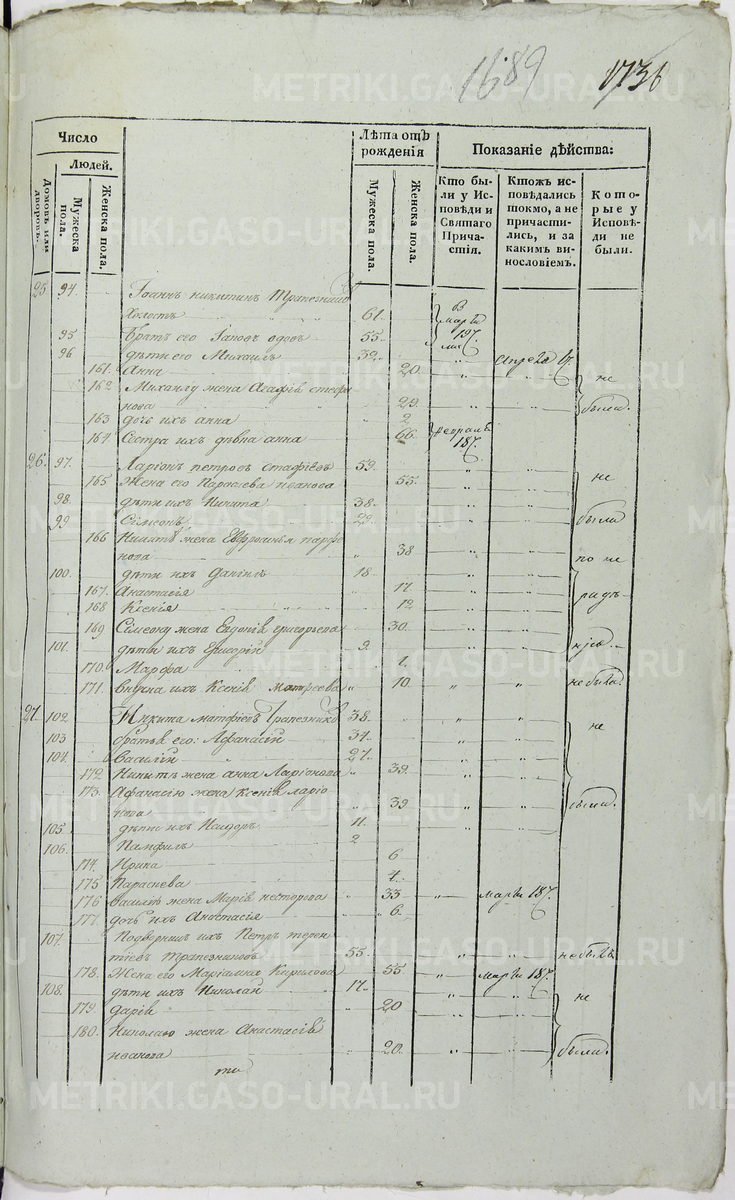 1689 1736
METRIKI.GASO-URAL.RU
Число
Людей.
Домовъ или дворовъ.
Мужеска пола.
Женска пола.
Лѣта отъ рожденія
Мужеска пола.
Женска пола.
Показаніе дѣйства:
Кто бы-
ли у Ис-
повѣди и
Святаго
Прича-
стія.
Ктожъ ис-
повѣдались
токмо, а не
причасти-
лись, и за
какимъ ви-
нословіемъ.
Кото-
рые у
Исповѣ-
ди не
были.
25 94 Іоаннъ никитинъ Трапезнико
холостъ 61. в марта
95 Братъ его Іаковъ вдовъ 55. 19 ч.
96 дѣти его Михаилъ 32.
161. Анна 20 Апреля
162 Михаилу жена Агафія стефа
нова 29. не были.
163 дочь ихъ анна 2
164 Сестра ихъ дѣвка анна 66.
26. 97. Ларіонъ петровъ 59.
165 Жена его Параскева иванова 55. не
98. дѣти ихъ Никита 38.
99 Симеонъ 29 были
166 Никитѣ жена Евфросинья парфе
нова 38 по не
100. дѣти ихъ Даніилъ 18
167. Анастасія 17. радѣ
168 Ксенія 12.
169 Симеону жена Евдокія григорьева 30.
101. дѣти ихъ Григорій 9. нію.
170. Марфа 1.
171. внучка ихъ Ксенія матфеева 10. не была.
27. 102. Никита матфеевъ Трапезнико 38. не
103 братья его: Афанасій 31.
104. Василій 27.
172. Никитѣ жена анна Ларіонова 39.
173. Афанасію жена Ксенія ларіо
нова 39 были.
105. дѣти ихъ Исидоръ 11.
106. Памфилъ 2
174. Ирина 6
175 Параскева 4.
176 Василію жена Марія нестерова 33 марта 18 ч.
177. дочь ихъ Анастасія 6.
107. Подворникъ ихъ Петръ терен
тіевъ Трапезниковъ 55. не былъ
178. Жена его Маріамна Кирилова 55 Марта 18 ч.
108. дѣти ихъ Николай 17. не
179. Дарія 20
180. Николаю жена Анастасія
иванова 20. были.